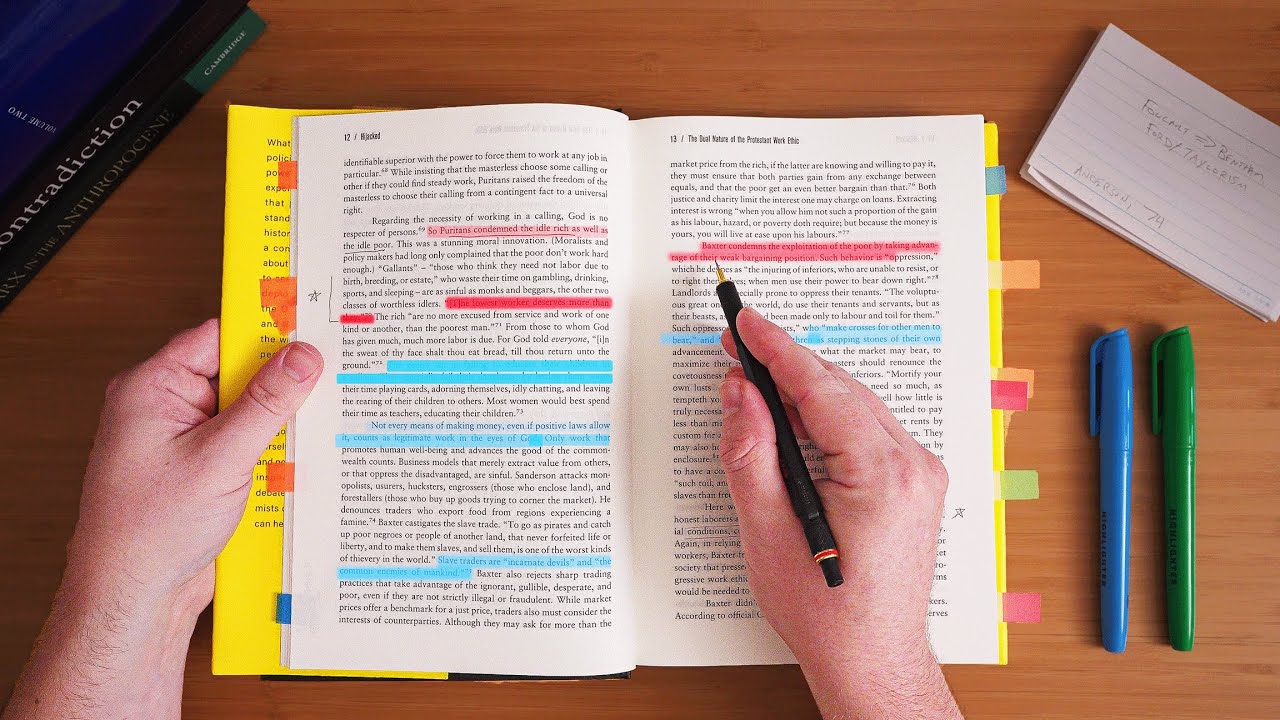 VOLUME TWO
ontradiction
MARX IN THE ANTHROPOCENE
CAMBRIDGE
What
polici
pow
exper
that
stand
histor
a con
about
depl
of th
and
worke
debat
mists
can he
12 / Hijacked
identifiable superior with the power to force them to work at any job in
particular.68 While insisting that the masterless choose some calling or
other if they could find steady work, Puritans raised the freedom of the
masterless to choose their calling from a contingent fact to a universal
right.
Regarding the necessity of working in a calling, God is no
respecter of persons.69 So Puritans condemned the idle rich as well as
the idle poor. This was a stunning moral innovation. (Moralists and
policy makers had long only complained that the poor don't work hard
enough.) "Gallants" – "those who think they need not labor due to
birth, breeding, or estate," who waste their time on gambling, drinking,
sports, and sleeping – are as sinful as monks and beggars, the other two
classes of worthless idlers. "[T]he lowest worker deserves more than
The rich "are no more excused from service and work of one
kind or another, than the poorest man."71 From those to whom God
has given much, much more labor is due. For God told everyone, "[i]n
the sweat of thy face shalt thou eat bread, till thou return unto the
ground."72
their time playing cards, adorning themselves, idly chatting, and leaving
the rearing of their children to others. Most women would best spend
their time as teachers, educating their children.73
Not every means of making money, even if positive laws allow
it, counts as legitimate work in the eyes of God. Only work that
promotes human well-being and advances the good of the common-
wealth counts. Business models that merely extract value from others,
or that oppress the disadvantaged, are sinful. Sanderson attacks mon-
opolists, usurers, hucksters, engrossers (those who enclose land), and
forestallers (those who buy up goods trying to corner the market). He
denounces traders who export food from regions experiencing a
famine.74 Baxter castigates the slave trade. "To go as pirates and catch
up poor negroes or people of another land, that never forfeited life or
liberty, and to make them slaves, and sell them, is one of the worst kinds
of thievery in the world." Slave traders are "incarnate devils" and "the
common enemies of mankind."75 Baxter also rejects sharp trading
practices that take advantage of the ignorant, gullible, desperate, and
poor, even if they are not strictly illegal or fraudulent. While market
prices offer a benchmark for a just price, traders also must consider the
interests of counterparties. Although they may ask for more than the
13 / The Dual Nature of the Protestant Work Ethic
market price from the rich, if the latter are knowing and willing to pay it,
they must ensure that both parties gain from any exchange between
equals, and that the poor get an even better bargain than that.76 Both
justice and charity limit the interest one may charge on loans. Extracting
interest is wrong "when you allow him not such a proportion of the gain
as his labour, hazard, or poverty doth require; but because the money is
yours, you will live at ease upon his labours."77
Baxter condemns the exploitation of the poor by taking advan-
tage of their weak bargaining position. Such behavior is "oppression,"
which he defines as "the injuring of inferiors, who are unable to resist, or
to right themselves; when men use their power to bear down right."78
Landlords are especially prone to oppress their tenants. "The voluptu-
ous great ones of the world, do use their tenants and servants, but as
their beasts, as if they had been made only to labour and toil for them."
Such oppressors who "make crosses for other men to
bear," and as stepping stones of their own
advancement. what the market may bear, to
maximize their masters should renounce the
covetousness inferiors. "Mortify your
own lusts need so much, as
tempteth you well how little is
truly necessary entitled to pay
less than market rents by
custom for They
may also have
enclosure.
to have a co
"such toil, and
slaves than free
Here w
honest laborers a
ial conditions, c
Again, in relying
workers, Baxter
society that presse
gressive work ethi
would be needed to
Baxter didn' kers.
According to official C serves
FOUCAULT => BENTHAM
FORD/TAYLORISM
ANDERSON, 74
HIGHLIGHTER
HIGHLIGHTER